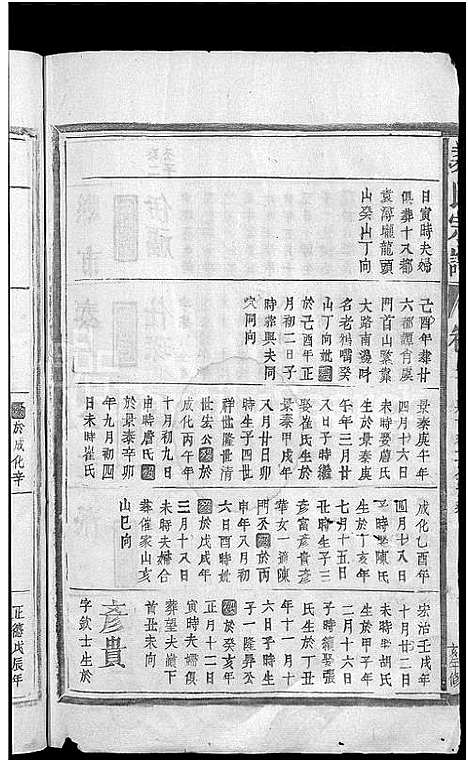 日寅時夫婦
俱葬十八都
龍頭
山癸山丁向
己酉年葬廿
六都譚肖虞
門首山
大路南湯
名老鴉嘴癸
山丁向妣
於己酉年正
月初二日子
時葬與夫同
穴同向
景泰庚午年
四月十六日
未時娶詹氏
生於景泰庚
午年三月廿
八日子時繼
娶崔氏生於
景泰甲戌年
八月廿日卯
時生子四世
祥世隆世清
世宏公
成化丙午年
十月初九日
申時詹氏
於景泰辛卯
年九月初四
日未時崔氏
於成化辛
成化乙酉年
四月十八日
時娶陳氏
生於丁亥年
七月十五日
丑時生子三
彦富彦貴彦
華女一適陳
門公於丙
申年八月初
六日酉時妣
於戊戌年
三月十八日
未時夫婦合
葬催家山亥
山巳向
弘治壬戌年
十月廿二日
未時娶胡氏
生於甲子年
二月十六日
子時續娶張
氏生於丁丑
年十一月十
六日子時生
子一隆昇公
於癸亥年
正月十二日
寅時夫婦俱
葬望夫嶺下
首丑未向
彦貴
字欽士生於
正德戊辰年